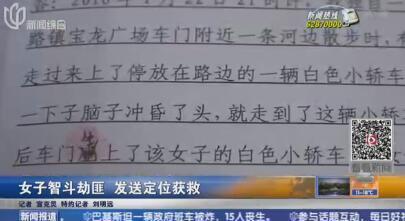 新闻综合
新闻热线
62870000
路镇宝龙广场车门附近一条河边散步时,
走过来上了停放在路边的一辆白色小轿车
一下子脑子冲昏了头,就走到了这辆小轿
后车门 上了该女子的白色小轿车
看看新闻
女子智斗劫匪 发送定位获救
记者 宣克炅 特约记者 刘明远
新闻报道。
巴基斯坦一辆政府班车被炸,15人丧生。
参与话题互动,每日好